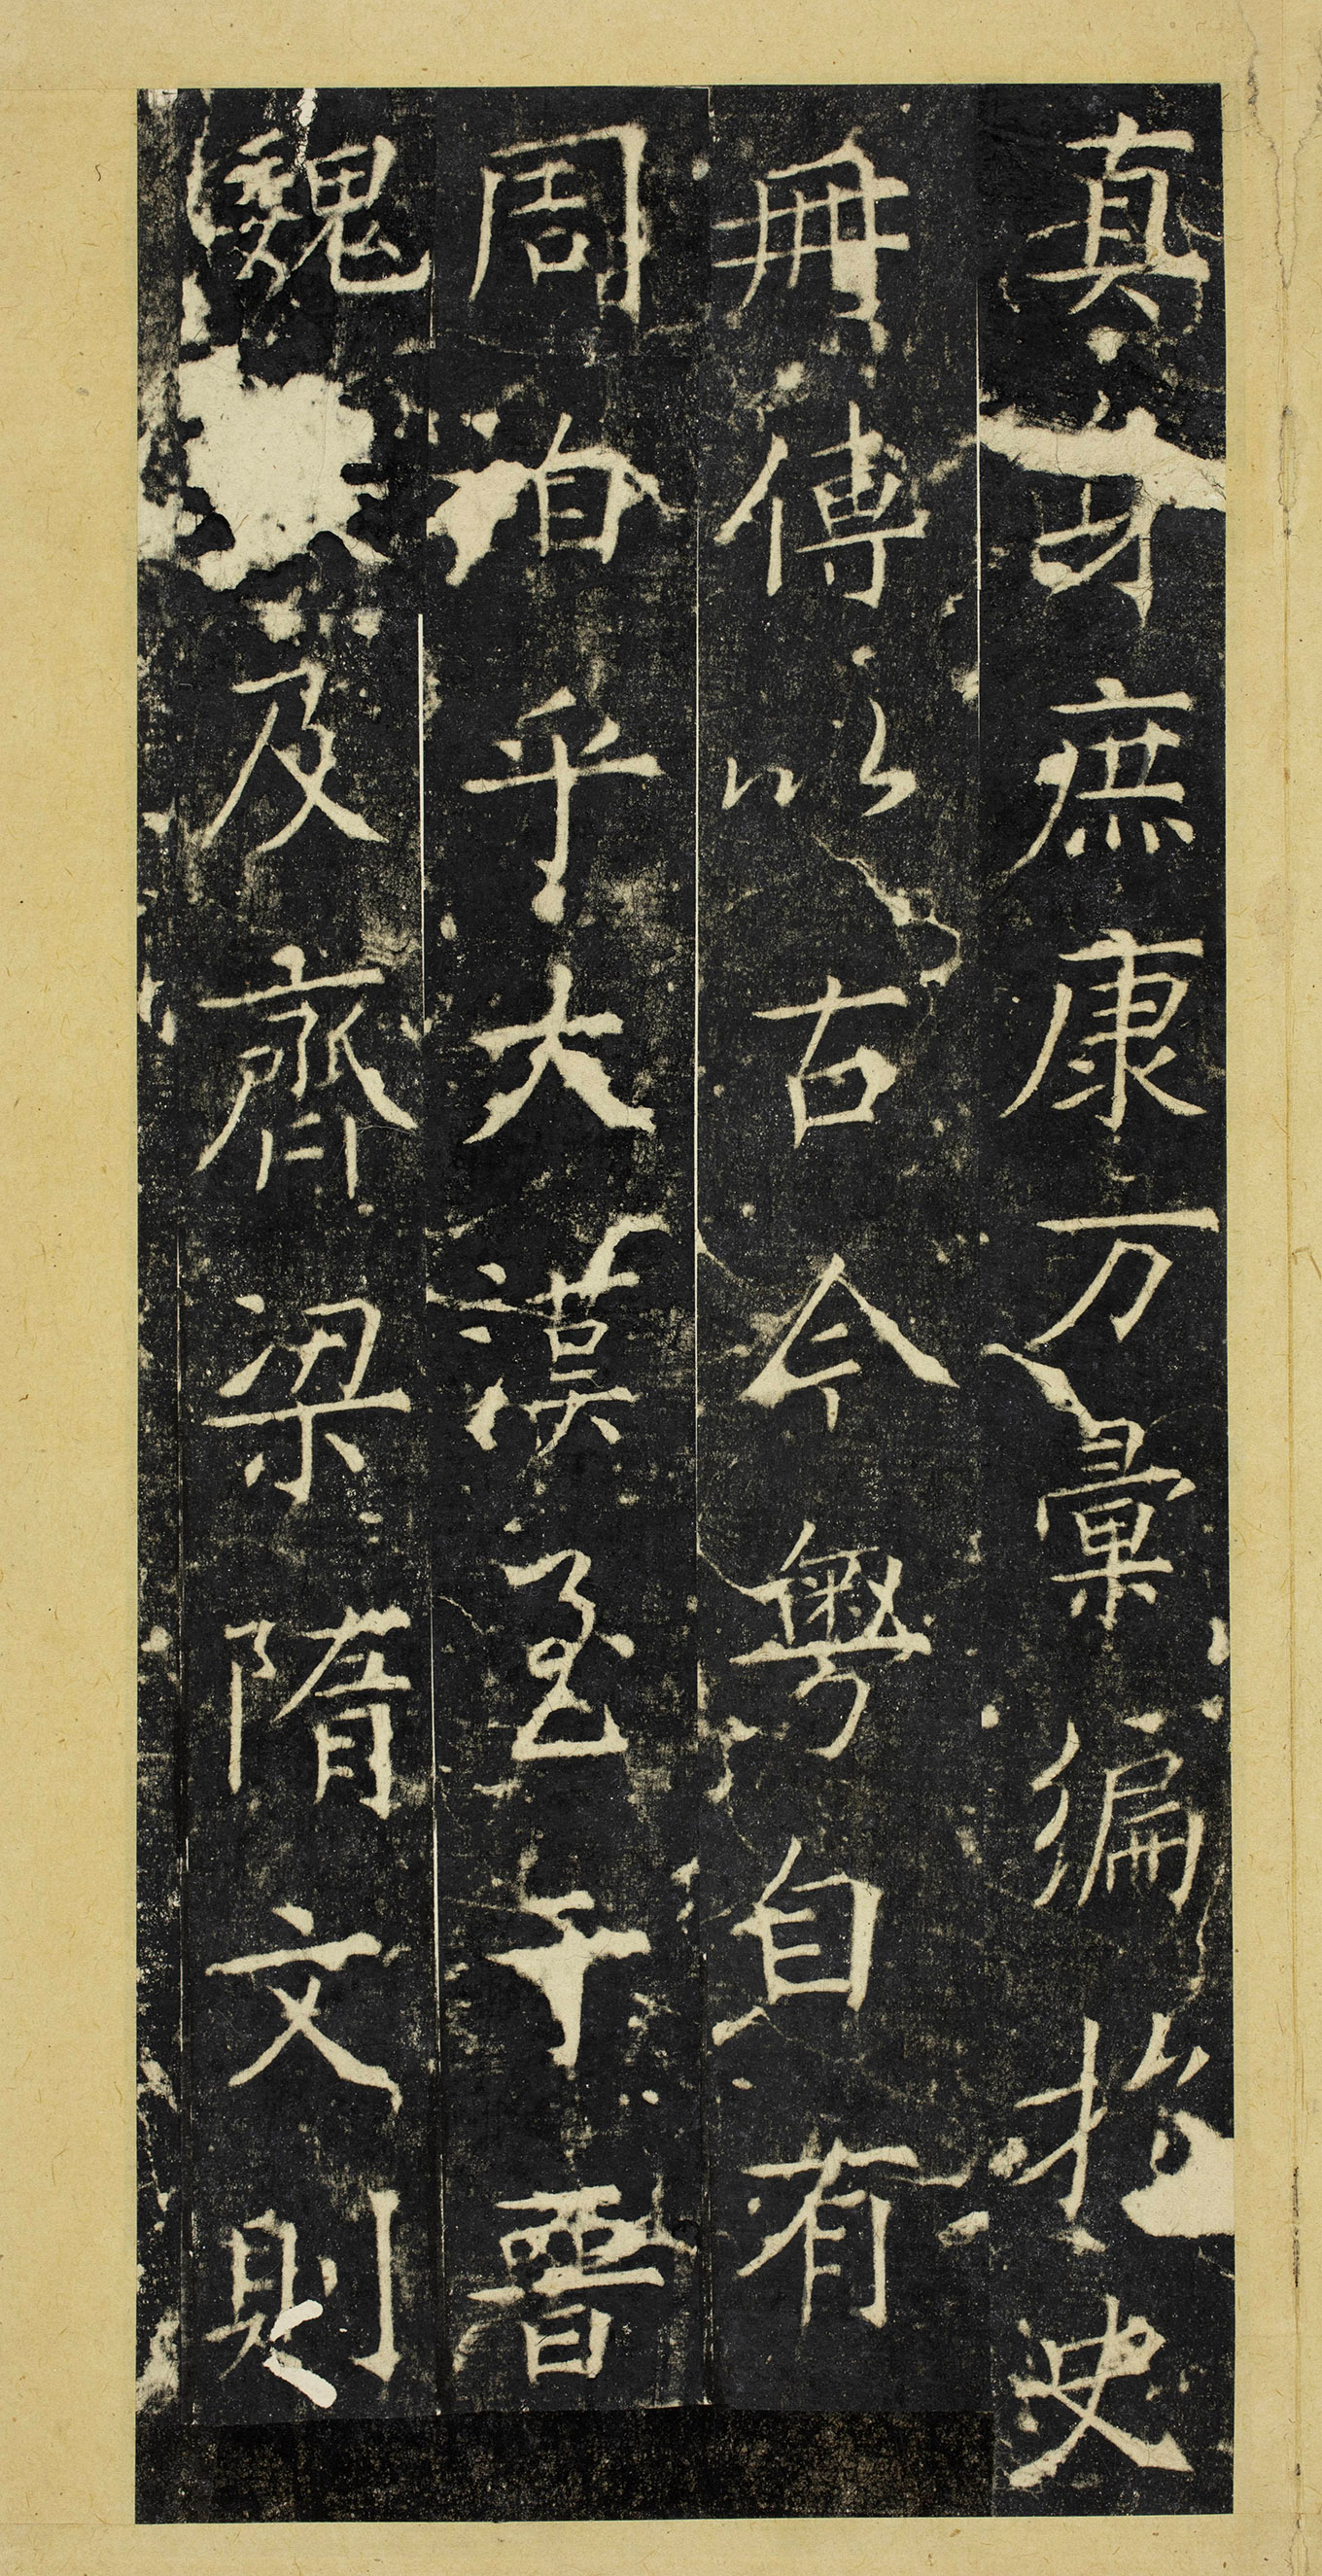 真庶康万彙徧扵史
冊傳以古今粤自有
周洎乎大漢至于晉
魏及齊梁隋文則